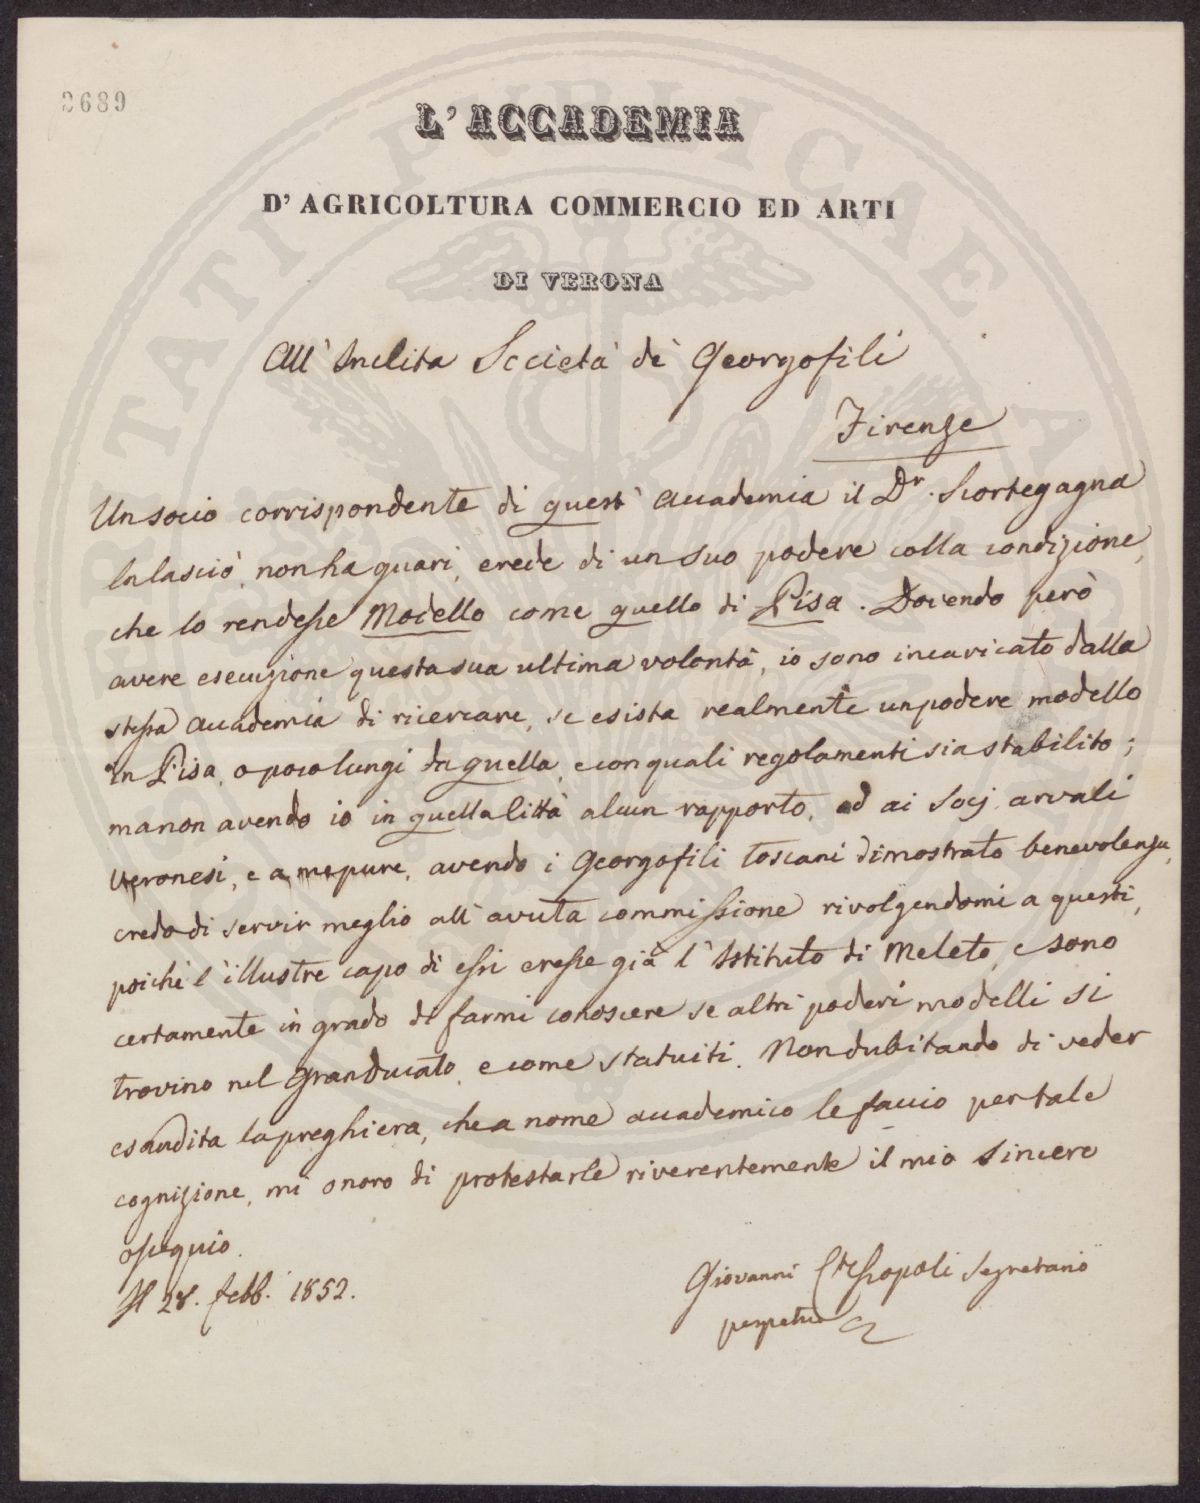 2689
L'ACCADEMIA
D'AGRICOLTURA COMMERCIO ED ARTI
DI VERONA
All' Inclita Società dè Georgofili
Firenze
Un socio corrispondente di quest' accademia il Dr. Scortegagna
la lasciò, non ha guari, erede di un suo podere colla condizione,
che lo rendesse Modello come quello di Pisa. Dovendo però
avere esecuzione questa sua ultima volontà, io sono incaricato dalla
stessa accademia di ricercare, se esista realmente un podere modello
in Pisa, o poco lungi da quella, e con quali regolamenti sia stabilito;
ma non avendo io in quella Città alcun rapporto, ed ai Socj arvali
Veronesi, e a me pure, avendo i Georgofili toscani dimostrato benevolenza,
credo di servir meglio all' avuta commissione rivolgendomi a questi,
poichè l'illustre capo di essi eresse già l'Istituto di Meleto, e sono
certamente in grado di farmi conoscere se altri poderi modelli si
trovino nel Granducato, e come statuiti. Non dubitando di veder
esaudita la preghiera, che a nome accademico le faccio per tale
cognizione, mi onoro di protestarle riverentemente il mio sincero
ossequio.
Il 28. febb. 1852.
Giovanni Scopoli Segretario
perpetuo
PUBLICAE